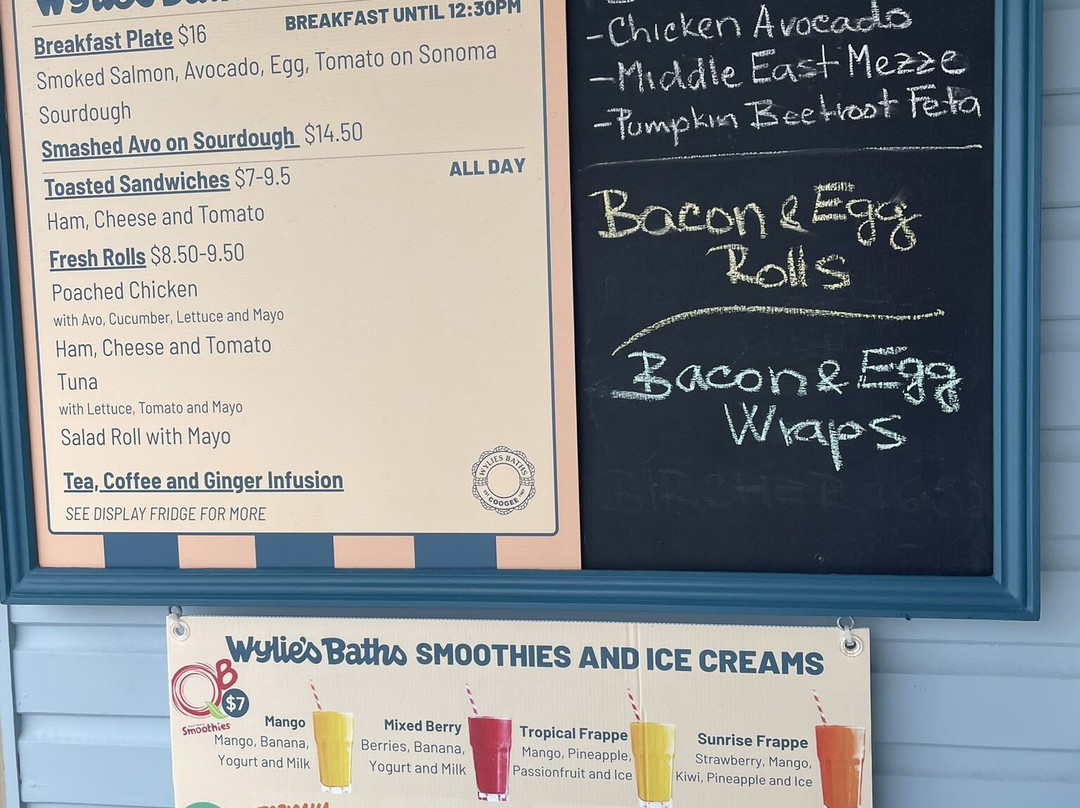 Wylie's Baths
BREAKFAST UNTIL 12:30PM
Breakfast Plate $16
Smoked Salmon, Avocado, Egg, Tomato on Sonoma
Sourdough
Smashed Avo on Sourdough $14.50
ALL DAY
Toasted Sandwiches $7-9.5
Ham, Cheese and Tomato
Fresh Rolls $8.50-9.50
Poached Chicken
with Avo, Cucumber, Lettuce and Mayo
Ham, Cheese and Tomato
Tuna
with Lettuce, Tomato and Mayo
Salad Roll with Mayo
Tea, Coffee and Ginger Infusion
SEE DISPLAY FRIDGE FOR MORE
WYLIES BATHS
COOGEE
-Chicken Avocado
-Middle East Mezze
-Pumpkin Beetroot Feta
Bacon & Egg
Rolls
Bacon & Egg
Wraps
Wylie's Baths SMOOTHIES AND ICE CREAMS
QB
Smoothies
$7
Mango
Mango, Banana,
Yogurt and Milk
Mixed Berry
Berries, Banana,
Yogurt and Milk
Tropical Frappe
Mango, Pineapple,
Passionfruit and Ice
Sunrise Frappe
Strawberry, Mango,
Kiwi, Pineapple and Ice